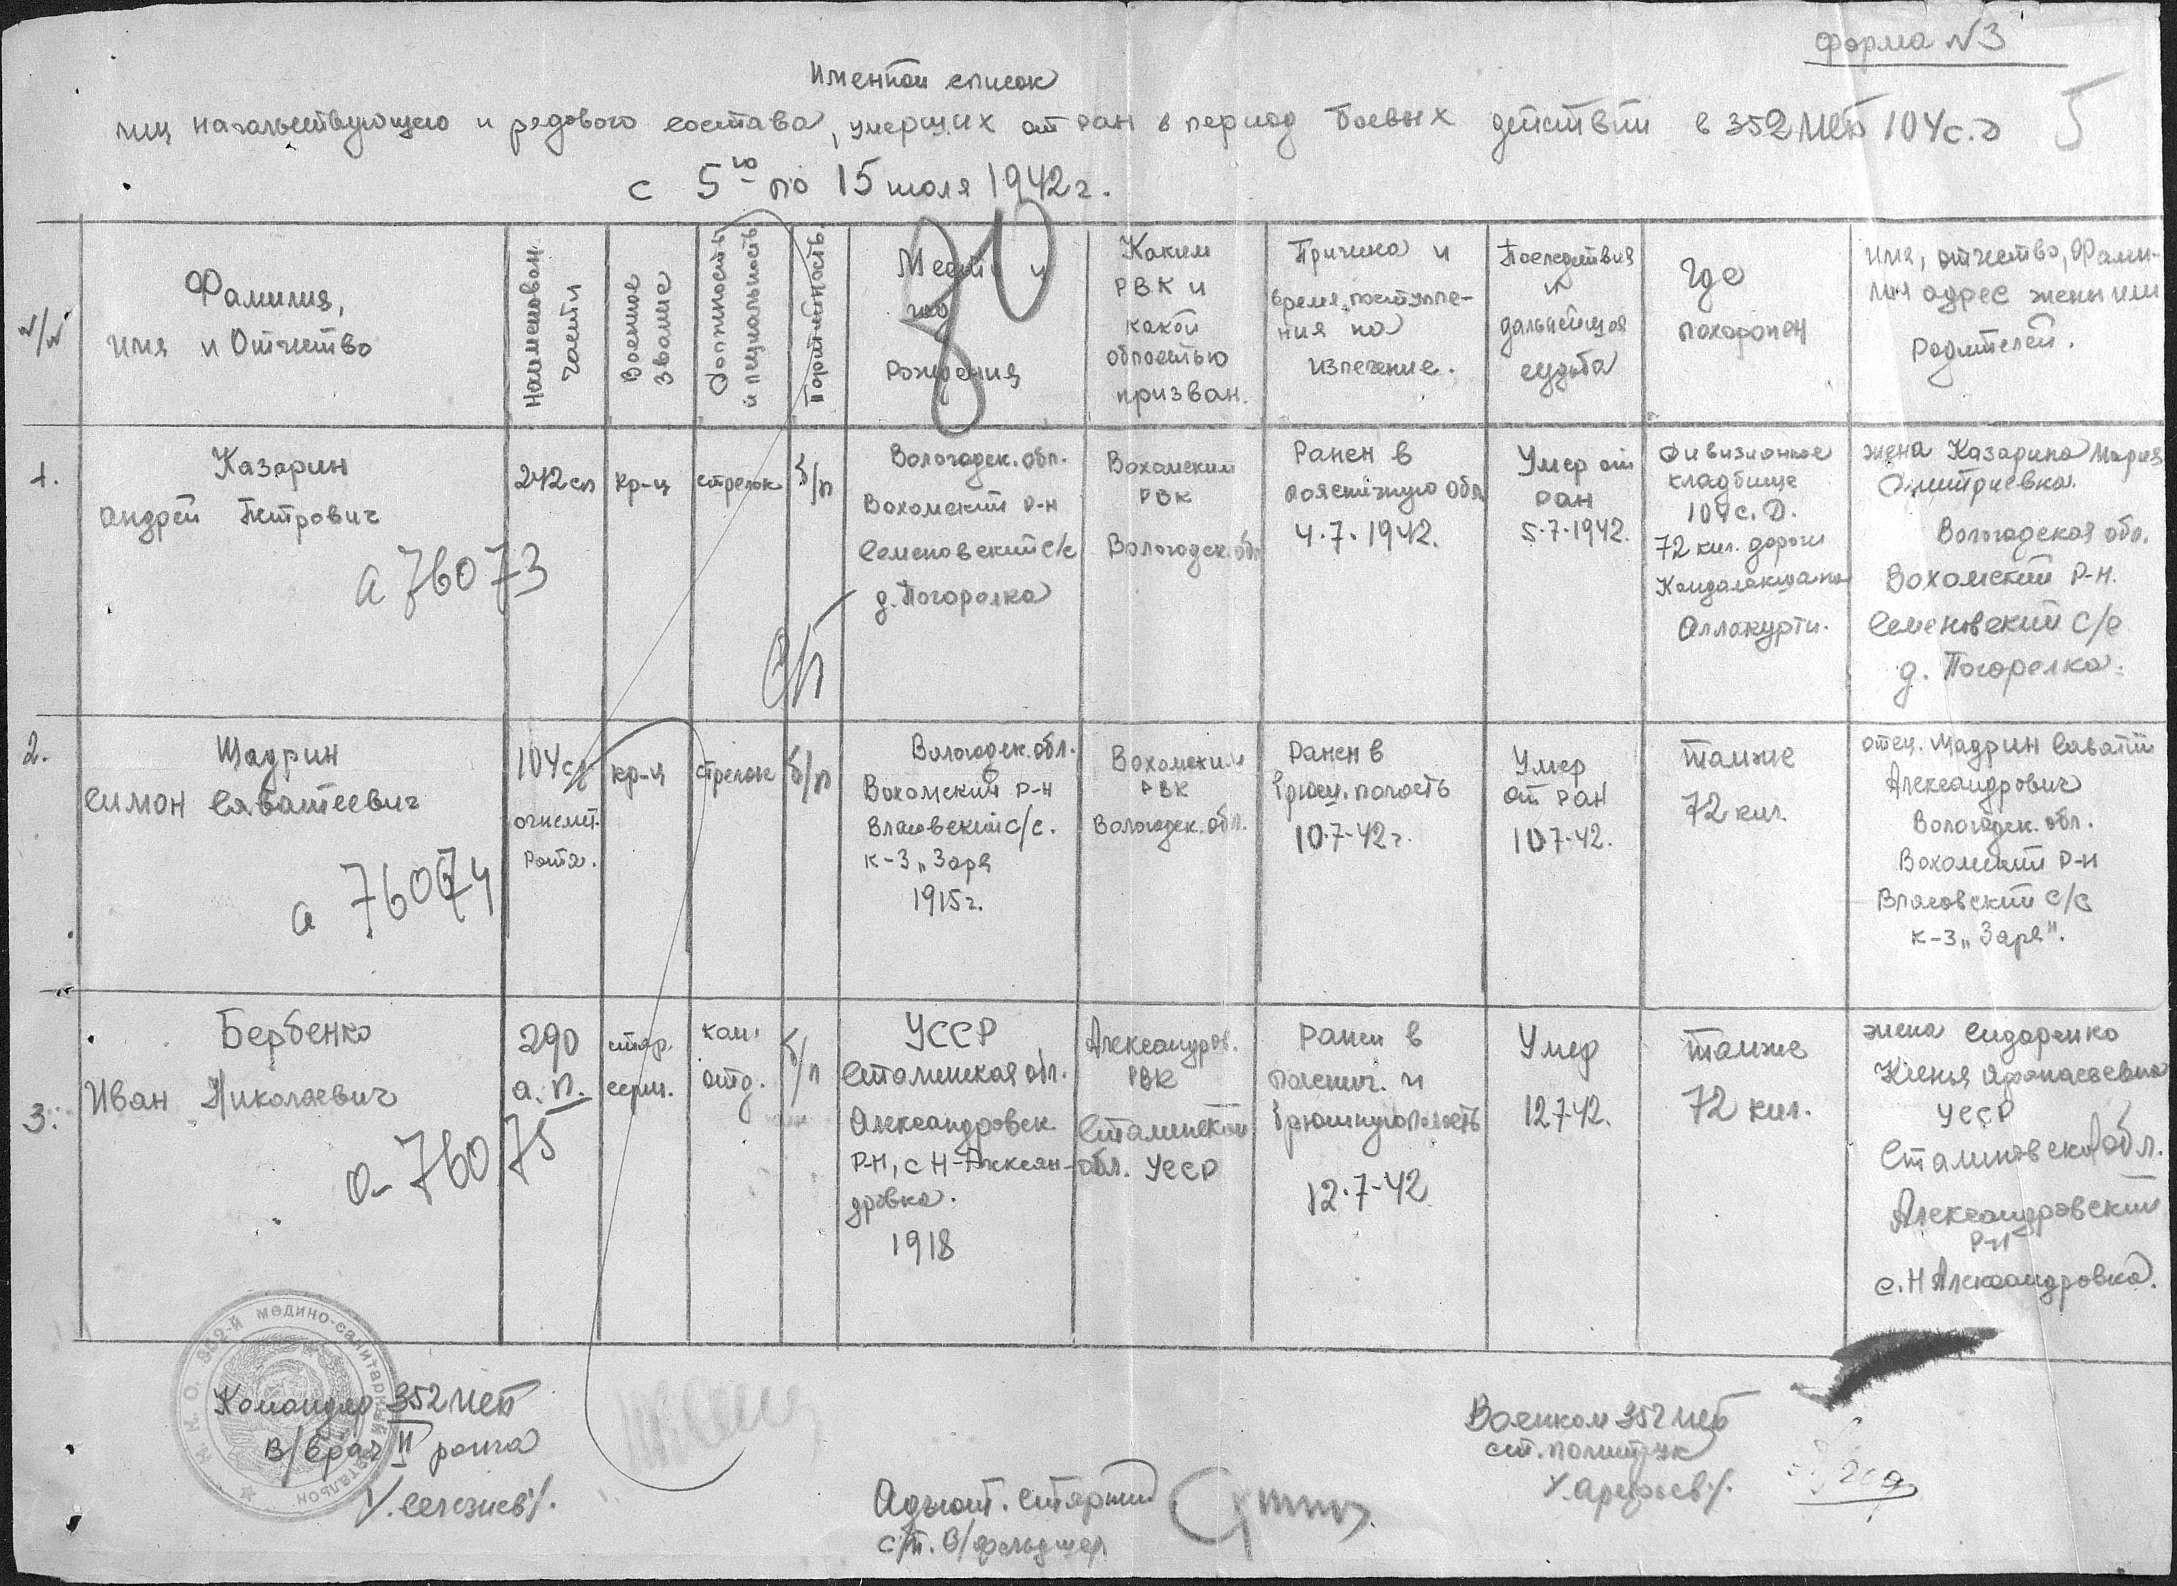 Форма №3
Именной список
лиц начальствующего и рядового состава, умерших от ран в период боевых действий в 352 МСБ 104 с.д
5
с 5го по 15 июля 1942 г.
80
№/№
Фамилия,
имя и Отчество
Наименован.
части
Военное
звание
Должность
и специальность
Партийность
Место и
год
Рождения
Каким
РВК и
какой
областью
призван.
Причина и
время поступле-
ния на
излечение.
Последствия
и
дальнейшая
судьба
Где
похоронен
Имя, отчество, Фами-
лия адрес жены или
Родителей.
1.
Казарин
Андрей Петрович
а 76073
242 сп
кр-ц
стрелок
б/п
Вологодск. обл.
Вохомский р-н
Семеновский с/с
д. Погорелка
Вохомским
РВК
Вологодск. обл
Ранен в
поясничную обл
4.7.1942.
Умер от
ран
5.7.1942.
Дивизионное
кладбище
104 с.Д.
72 кил. дороги
Кандалакша на
Аллакурти.
жена Казарина Мария
Дмитриевна.
Вологодская обл.
Вохомский р-н.
Семеновский с/с
д. Погорелка.
2.
Шадрин
Симон Саватеевич
а 76074
104 сд
огнемет.
рота.
кр-ц
стрелок
б/п
Вологодск. обл.
Вохомский р-н
Власовский с/с.
к-з „Заря
1915 г.
Вохомским
РВК
Вологодск. обл.
Ранен в
брюш. полость
10.7-42 г.
Умер
от ран
10.7-42.
Там же
72 кил.
отец. Шадрин Саватий
Александрович
Вологодск. обл.
Вохомский р-н
Власовский с/с
к-з „Заря".
3.
Бербенко
Иван Николаевич
а-76075
290
а.п.
стар.
серж.
ком.
отд.
б/п
УССР
Сталинская обл.
Александровск.
р-н, с Н-Алексан-
дровка.
1918
Александров.
РВК
Сталинской
обл. УССР
Ранен в
поясниц. и
брюшную полость
12.7-42
Умер
12.7.42.
Там же
72 кил.
жена Сидоренко
Ксенья Афанасьевна
УССР
Сталиновской обл.
Александровский
р-н
с. Н Александровка.
Н.К.О. 352-й медико-санитарный батальон
Командир 352 МСБ
в/врач II ранга
/Селезнев/.
Адъют. старший
ст. в/фельдшер
Военком 352 МСБ
ст. политрук
/Арефьев/.